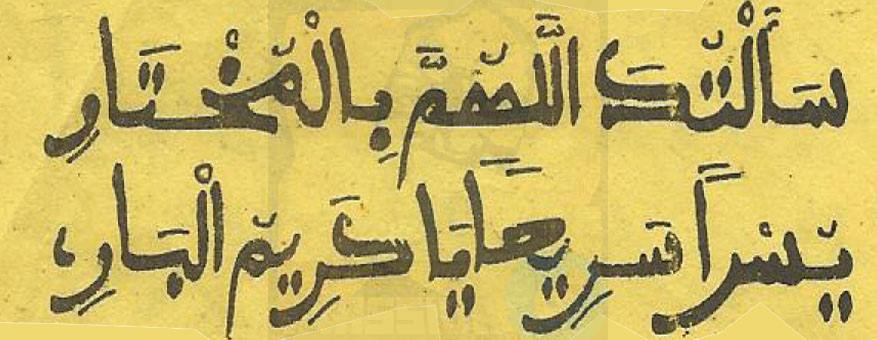 سَأَلْتُكَ اللَّهُمَّ بِالْمُخْتَارِ
يُسْراً سَرِيعاً يَا كَرِيمُ الْبَارِ،